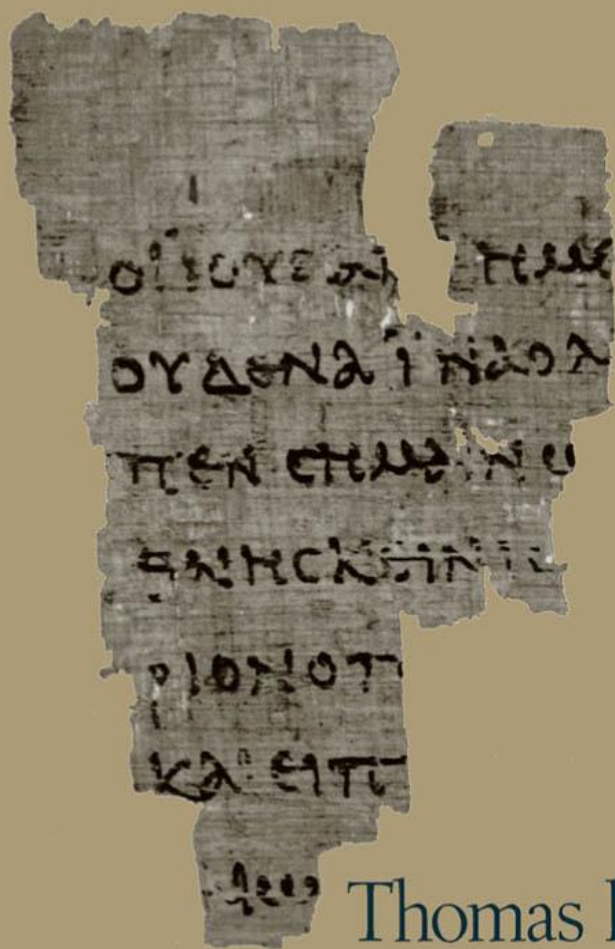 ΟΙ ΙΟΥΔΑΙ ΗΜΕ
ΟΥΔΕΝΑ ΙΝΑ Ο Λ
ΠΕΝ ϹΗΜΑΙΝΩ
ΘΝΗϹΚΕΙΝ ΙϹ
ΡΙΟΝ Ο Π
ΚΑΙ ΕΙΠ
Thomas